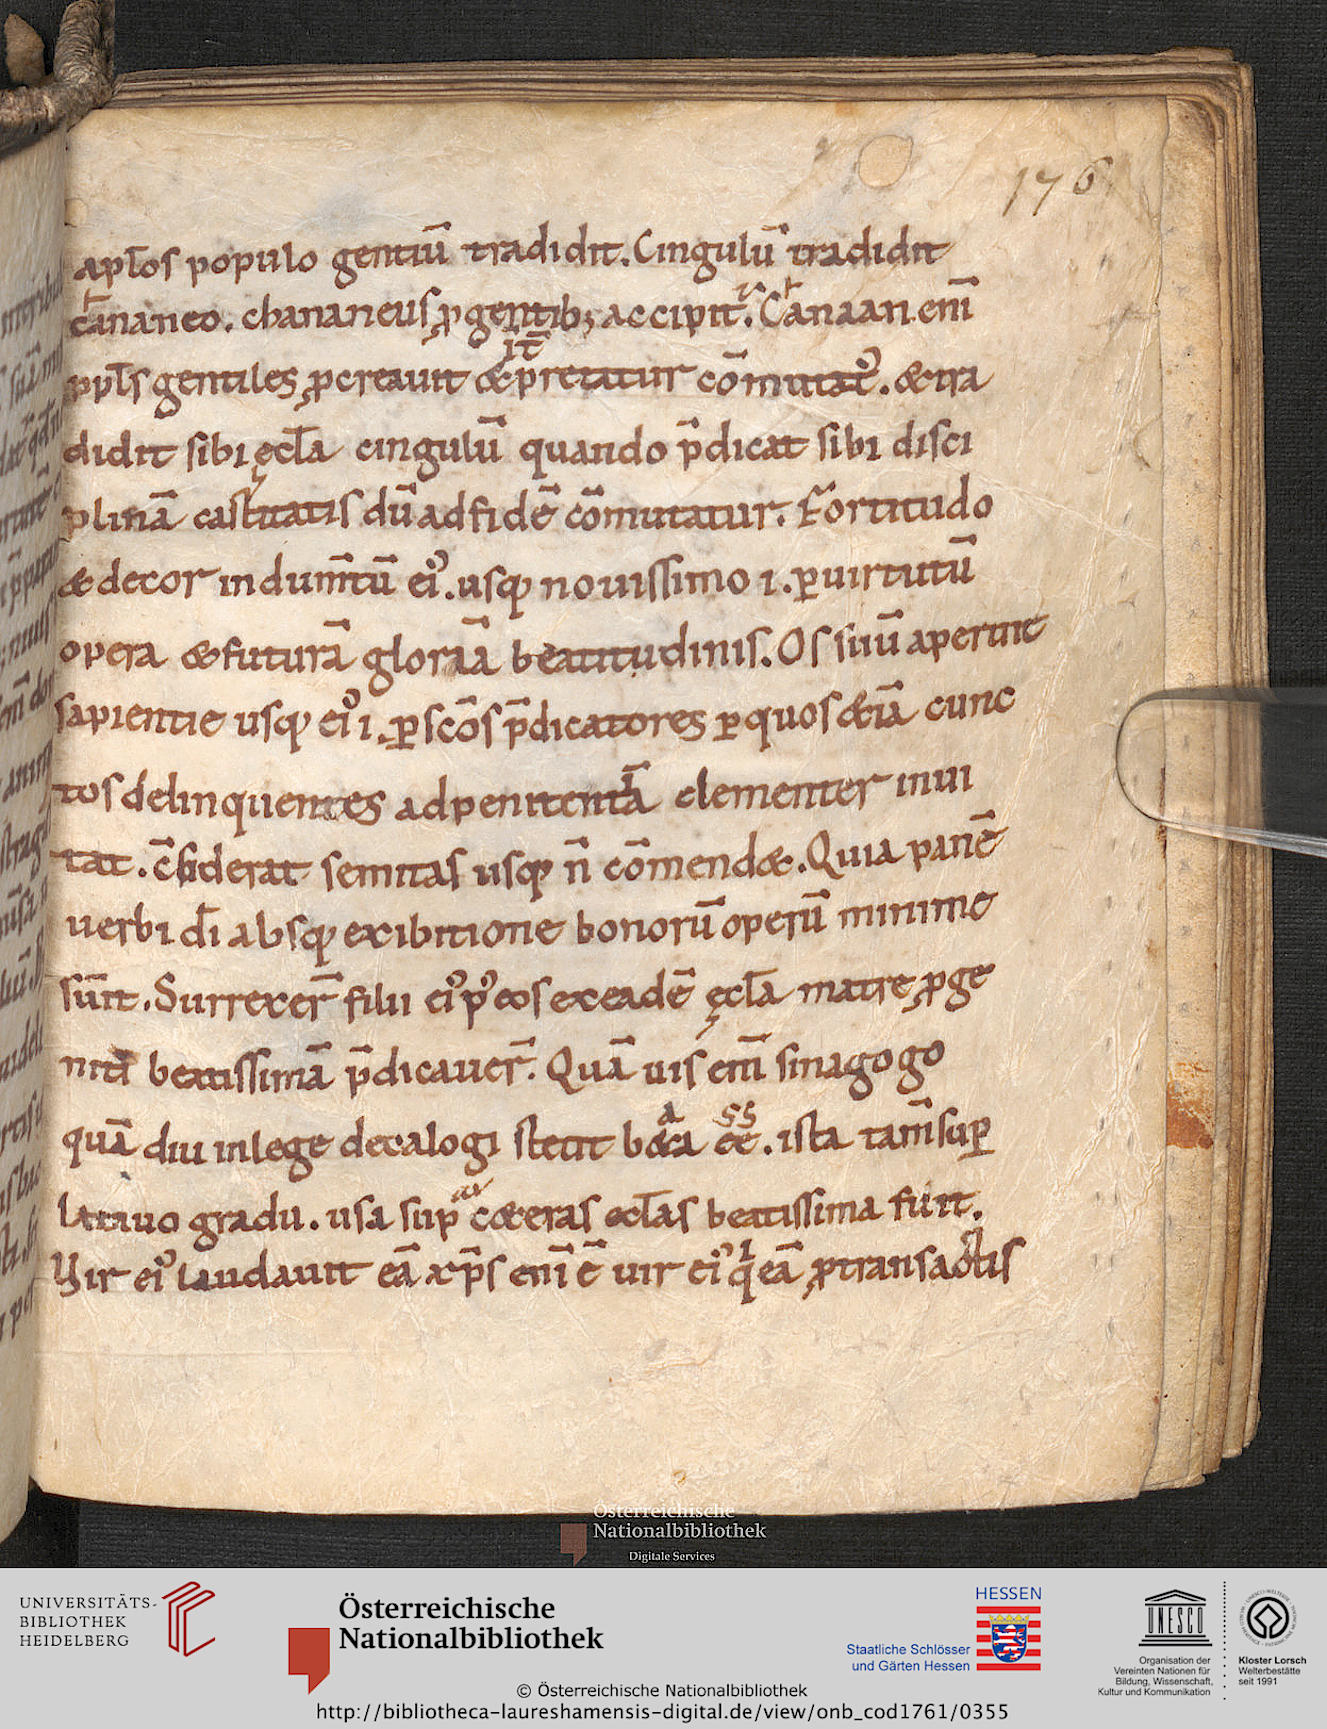 176
apl̄os populo gentiū tradidit. Cingulū tradidit
cananeo. chananeus ꝓ gentib; accipit. Canaan eni̅
ppl̄s gentiles ꝓcreauit &pretatur co̅mutat᷒. & tra
it̅
didit sibi ęccl̄a cingulū quando p̄dicat sibi disci
plinā castitatis dū ad fidē co̅mutatur. Fortitudo
& decor indum̅tū ei᷒. usq; nouissimo i. ꝑ uirtutū
opera & futurā gloriā beatitudinis. Os suū aperuit
sapientie usq; ei᷒ i. ꝑ sc̄os p̄dicatores ꝑ quos &iā cunc
tos delinquentes ad penitentiā clementer inui
tat. c̄siderat semitas usq; n̄ co̅mend&. Quia panē
uerbi dī absq; exibitione bonorū operū minime
su̅it. Surrexer̄ filii ei᷒ p᷒ eos ex eadē ęccl̄a matre ꝓge
niti beatissimā p̄dicauer̄. Quā uis eni̅ sinagogo
quā diu in lege decalogi stetit b&a e̅e. ista tam̄ suꝑ
a ss
latiuo gradu. usa sup c&eras eccl̄as beatissima fuit.
Vir ei᷒ laudauit eā xp̄s eni̅ ē uir ei᷒ qi eā ꝓ transactis
Österreichische
Nationalbibliothek
Digitale Services
UNIVERSITÄTS-
BIBLIOTHEK
HEIDELBERG
Österreichische
Nationalbibliothek
HESSEN
Staatliche Schlösser
und Gärten Hessen
UNESCO
Organisation der
Vereinten Nationen für
Bildung, Wissenschaft,
Kultur und Kommunikation
Kloster Lorsch
Welterbestätte
seit 1991
© Österreichische Nationalbibliothek
http://bibliotheca-laureshamensis-digital.de/view/onb_cod1761/0355